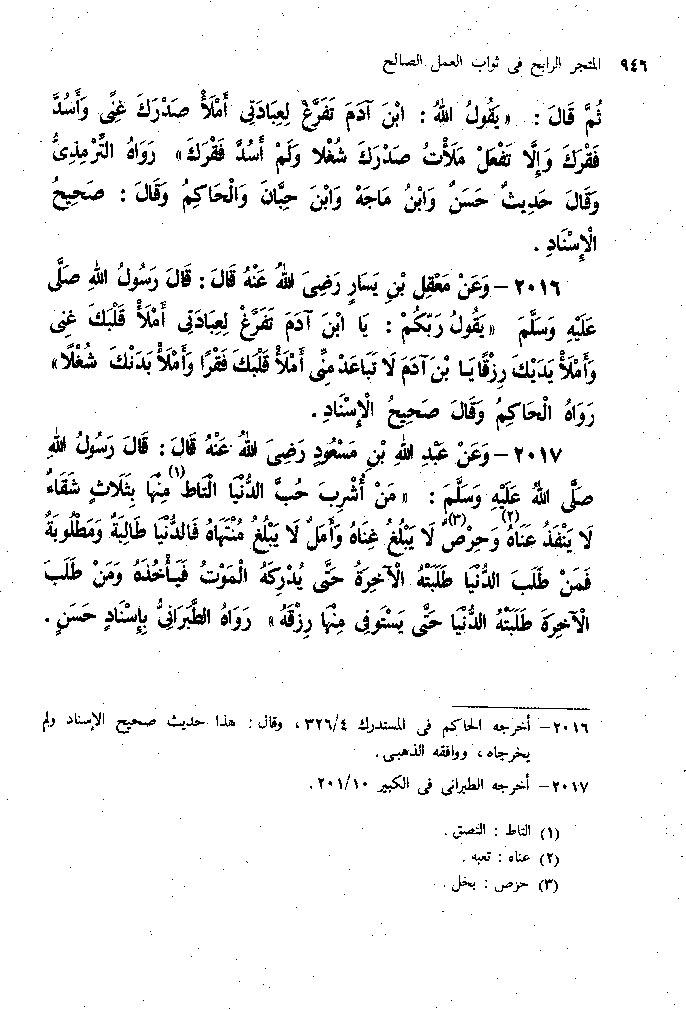 ٩٤٦ المتجر الرابح فى ثواب العمل الصالح
ثُمَّ قَالَ : « يَقُولُ اللهُ : ابْنَ آدَمَ تَفَرَّغْ لِعِبَادَتِى أَمْلَأْ صَدْرَكَ غِنًى وَأَسُدَّ
فَقْرَكَ وَإِلَّا تَفْعَلْ مَلَأْتُ صَدْرَكَ شُغْلًا وَلَمْ أَسُدَّ فَقْرَكَ » رَوَاهُ التِّرْمِذِىُّ
وَقَالَ حَدِيثٌ حَسَنٌ وَابْنُ مَاجَهْ وَابْنُ حِبَّانَ وَالْحَاكِمُ وَقَالَ : صَحِيحُ
الْإِسْنَادِ .
٢٠١٦ - وَعَنْ مَعْقِلِ بْنِ يَسَارٍ رَضِىَ اللهُ عَنْهُ قَالَ : قَالَ رَسُولُ اللهِ صَلَّى
عَلَيْهِ وَسَلَّمَ « يَقُولُ رَبُّكُمْ : يَا ابْنَ آدَمَ تَفَرَّغْ لِعِبَادَتِى أَمْلَأْ قَلْبَكَ غِنًى
وَأَمْلَأْ يَدَيْكَ رِزْقًا يَا بْنَ آدَمَ لَا تَبَاعَدْ مِنِّى أَمْلَأْ قَلْبَكَ فَقْرًا وَأَمْلَأْ بَدَنَكَ شُغْلًا »
رَوَاهُ الْحَاكِمُ وَقَالَ صَحِيحُ الْإِسْنَادِ .
٢٠١٧ - وَعَنْ عَبْدِ اللهِ بْنِ مَسْعُودٍ رَضِىَ اللهُ عَنْهُ قَالَ : قَالَ رَسُولُ اللهِ
صَلَّى اللهُ عَلَيْهِ وَسَلَّمَ : « مَنْ أُشْرِبَ حُبَّ الدُّنْيَا الْتَاطَ (١) مِنْهَا بِثَلَاثٍ شَقَاءٌ
لَا يَنْفَدُ عَنَاهُ (٢) وَحِرْصٌ (٣) لَا يَبْلُغُ غِنَاهُ وَأَمَلٌ لَا يَبْلُغُ مُنْتَهَاهُ فَالدُّنْيَا طَالِبَةٌ وَمَطْلُوبَةٌ
فَمَنْ طَلَبَ الدُّنْيَا طَلَبَتْهُ الْآخِرَةُ حَتَّى يُدْرِكَهُ الْمَوْتُ فَيَأْخُذَهُ وَمَنْ طَلَبَ
الْآخِرَةَ طَلَبَتْهُ الدُّنْيَا حَتَّى يَسْتَوفِىَ مِنْهَا رِزْقَهُ » رَوَاهُ الطَّبَرَانِىُّ بِإِسْنَادٍ حَسَنٍ .
٢٠١٦ - أخرجه الحاكم فى المستدرك ٣٢٦/٤ ، وقال : هذا حديث صحيح الإسناد ولم
يخرجاه ، ووافقه الذهبى .
٢٠١٧ - أخرجه الطبرانى فى الكبير ٢٠١/١٠ .
(١) التاط : التصق .
(٢) عناه : تعبه .
(٣) حرص : بخل .